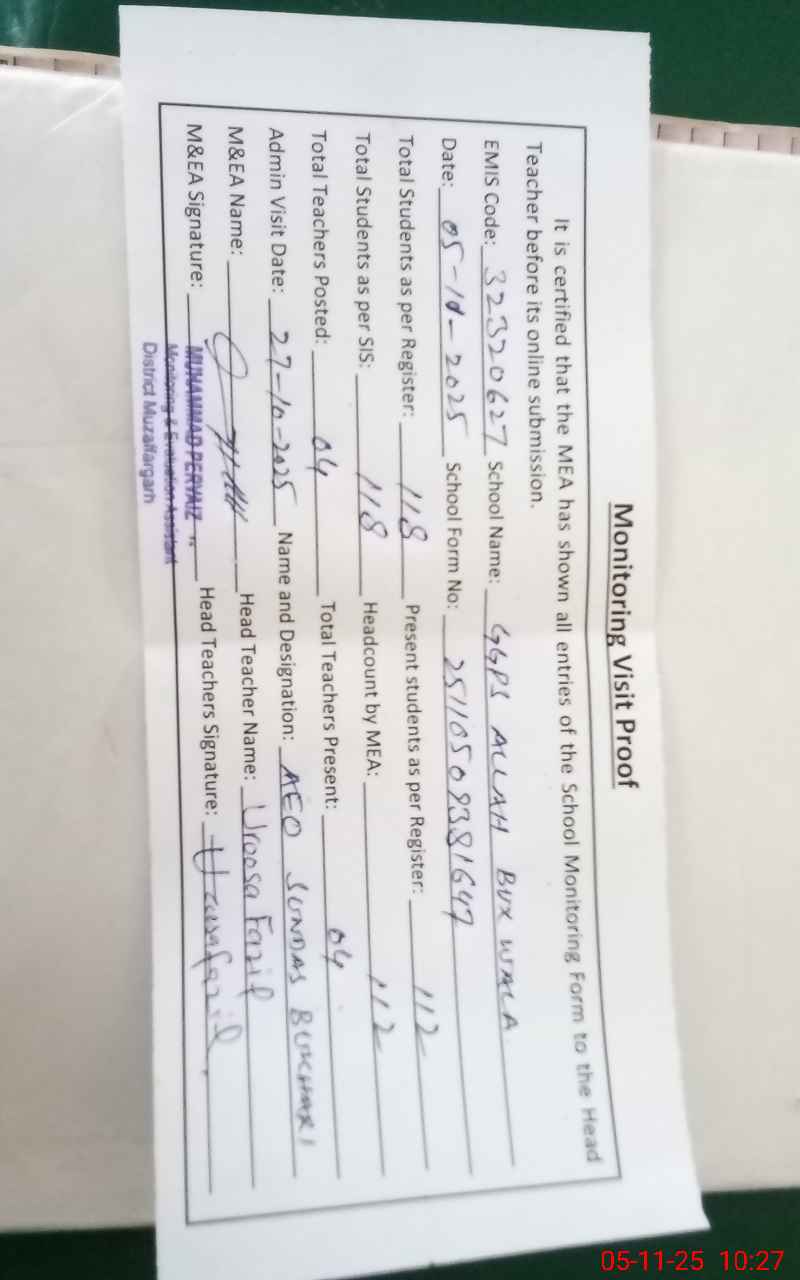 Monitoring Visit Proof
It is certified that the MEA has shown all entries of the School Monitoring Form to the Head
Teacher before its online submission.
EMIS Code: 32320627 School Name: GGPS ALLAH BUX WALA
Date: 05-11-2025 School Form No: 25110509381647
Total Students as per Register: 118 Present students as per Register: 112
Total Students as per SIS: 118 Headcount by MEA: 112
Total Teachers Posted: 04 Total Teachers Present: 04
Admin Visit Date: 27-10-2025 Name and Designation: AEO SUNDAS BUKHARI
M&EA Name: Head Teacher Name: Uroosa Fazil
M&EA Signature: Head Teachers Signature: Uroosa fazil
MUHAMMAD PERVAIZ
Monitoring & Evaluation Assistant
District Muzaffargarh
05-11-25 10:27